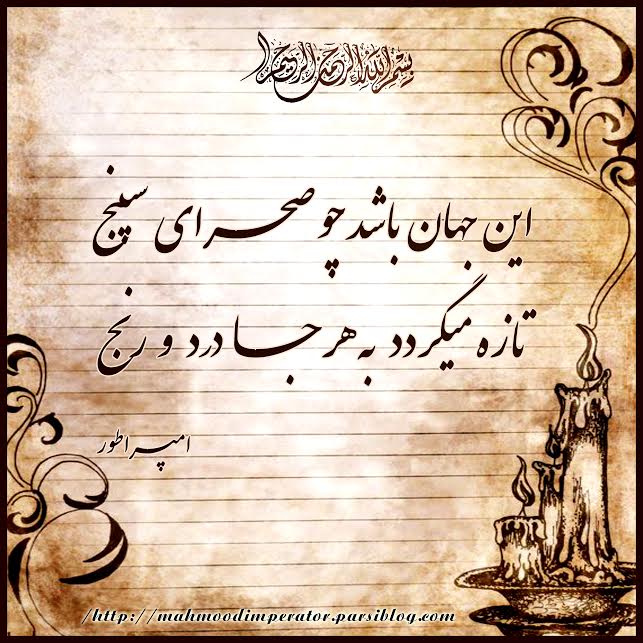 بسم الله الرحمن الرحیم
این جهان باشد چو صحرای سپنج
تازه میگردد به هر جا درد و رنج
امپراطور
/http://mahmoodimperator.parsiblog.com